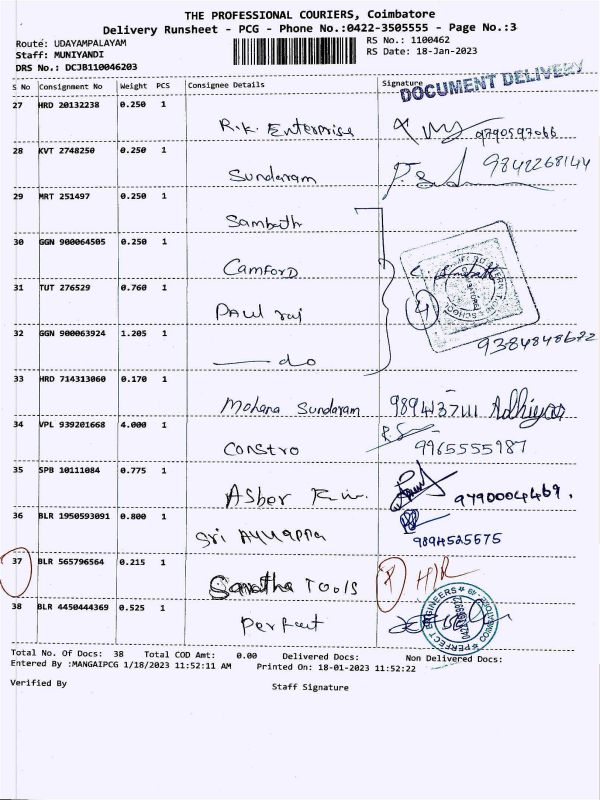 THE PROFESSIONAL COURIERS, Coimbatore
Delivery Runsheet - PCG - Phone No.:0422-3505555 - Page No.:3
Route: UDAYAMPALAYAM RS No.: 1100462
Staff: MUNIYANDI RS Date: 18-Jan-2023
DRS No.: DCJB110046203
DOCUMENT DELIVERY
S No Consignment No Weight PCS Consignee Details Signature
27 HRD 20132238 0.250 1 R.K. Enterprise 9790597066
28 KVT 2748250 0.250 1 Sundaram 9842268144
29 MRT 251497 0.250 1 Sambath
30 GGN 900064505 0.250 1 Camford
31 TUT 276529 0.760 1 Paul raj 4
32 GGN 900063924 1.205 1 do 9384848672
33 HRD 714313060 0.170 1 Mohana Sundaram 9894137111
34 VPL 939201668 4.000 1 Constro 9965555987
35 SPB 10111084 0.775 1 9790004469.
36 BLR 1950593091 0.800 1 Sri Ayyappa 9894525575
37 BLR 565796564 0.215 1 Tools
38 BLR 4450444369 0.525 1 Perfect PERFECT ENGINEERS
Total No. Of Docs: 38 Total COD Amt: 0.00 Delivered Docs: Non Delivered Docs:
Entered By :MANGAIPCG 1/18/2023 11:52:11 AM Printed On: 18-01-2023 11:52:22
Verified By Staff Signature